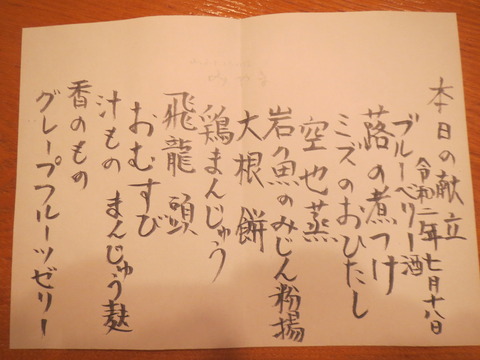 本日の献立
令和二年七月十八日
ブルーベリー酒
蕗の煮つけ
ミズのおひたし
空也蒸
岩魚のみじん粉揚
大根餅
鶏まんじゅう
飛龍頭
おむすび
汁もの まんじゅう麩
香のもの
グレープフルーツゼリー